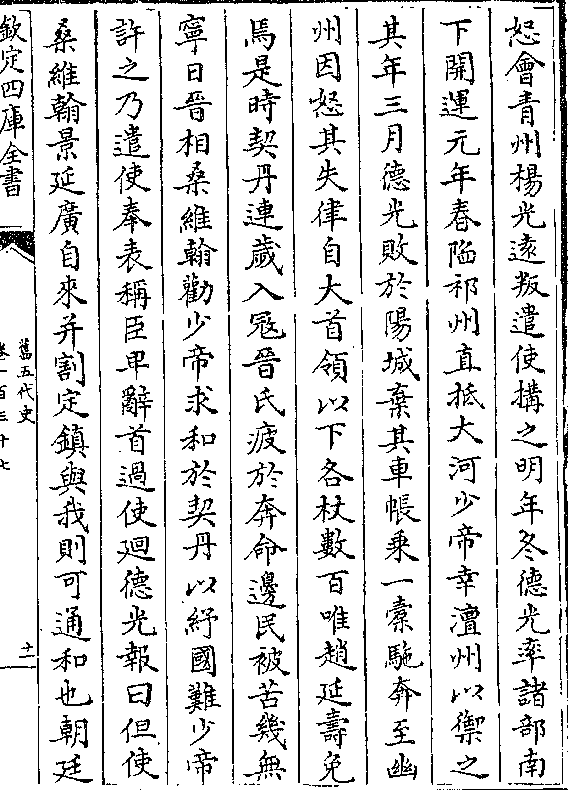 怒會青州楊光逺叛遣使搆之明年冬德光率諸部南
下開運元年春陷祁州直抵大河少帝幸澶州以禦之
其年三月德光敗於陽城棄其車帳乗一槖駞奔至幽
州因怒其失律自大首領以下各杖數百唯趙延壽免
焉是時契丹連歲入冦晉氏疲於奔命邊民被苦幾無
寧日晉相桑維翰勸少帝求和於契丹以紓國難少帝
許之乃遣使奉表稱臣卑辭首過使廻德光報曰但使
桑維翰景延廣自來并割定鎮與我則可通和也朝廷
欽定四庫全書
舊五代史
卷一百三十七
十一